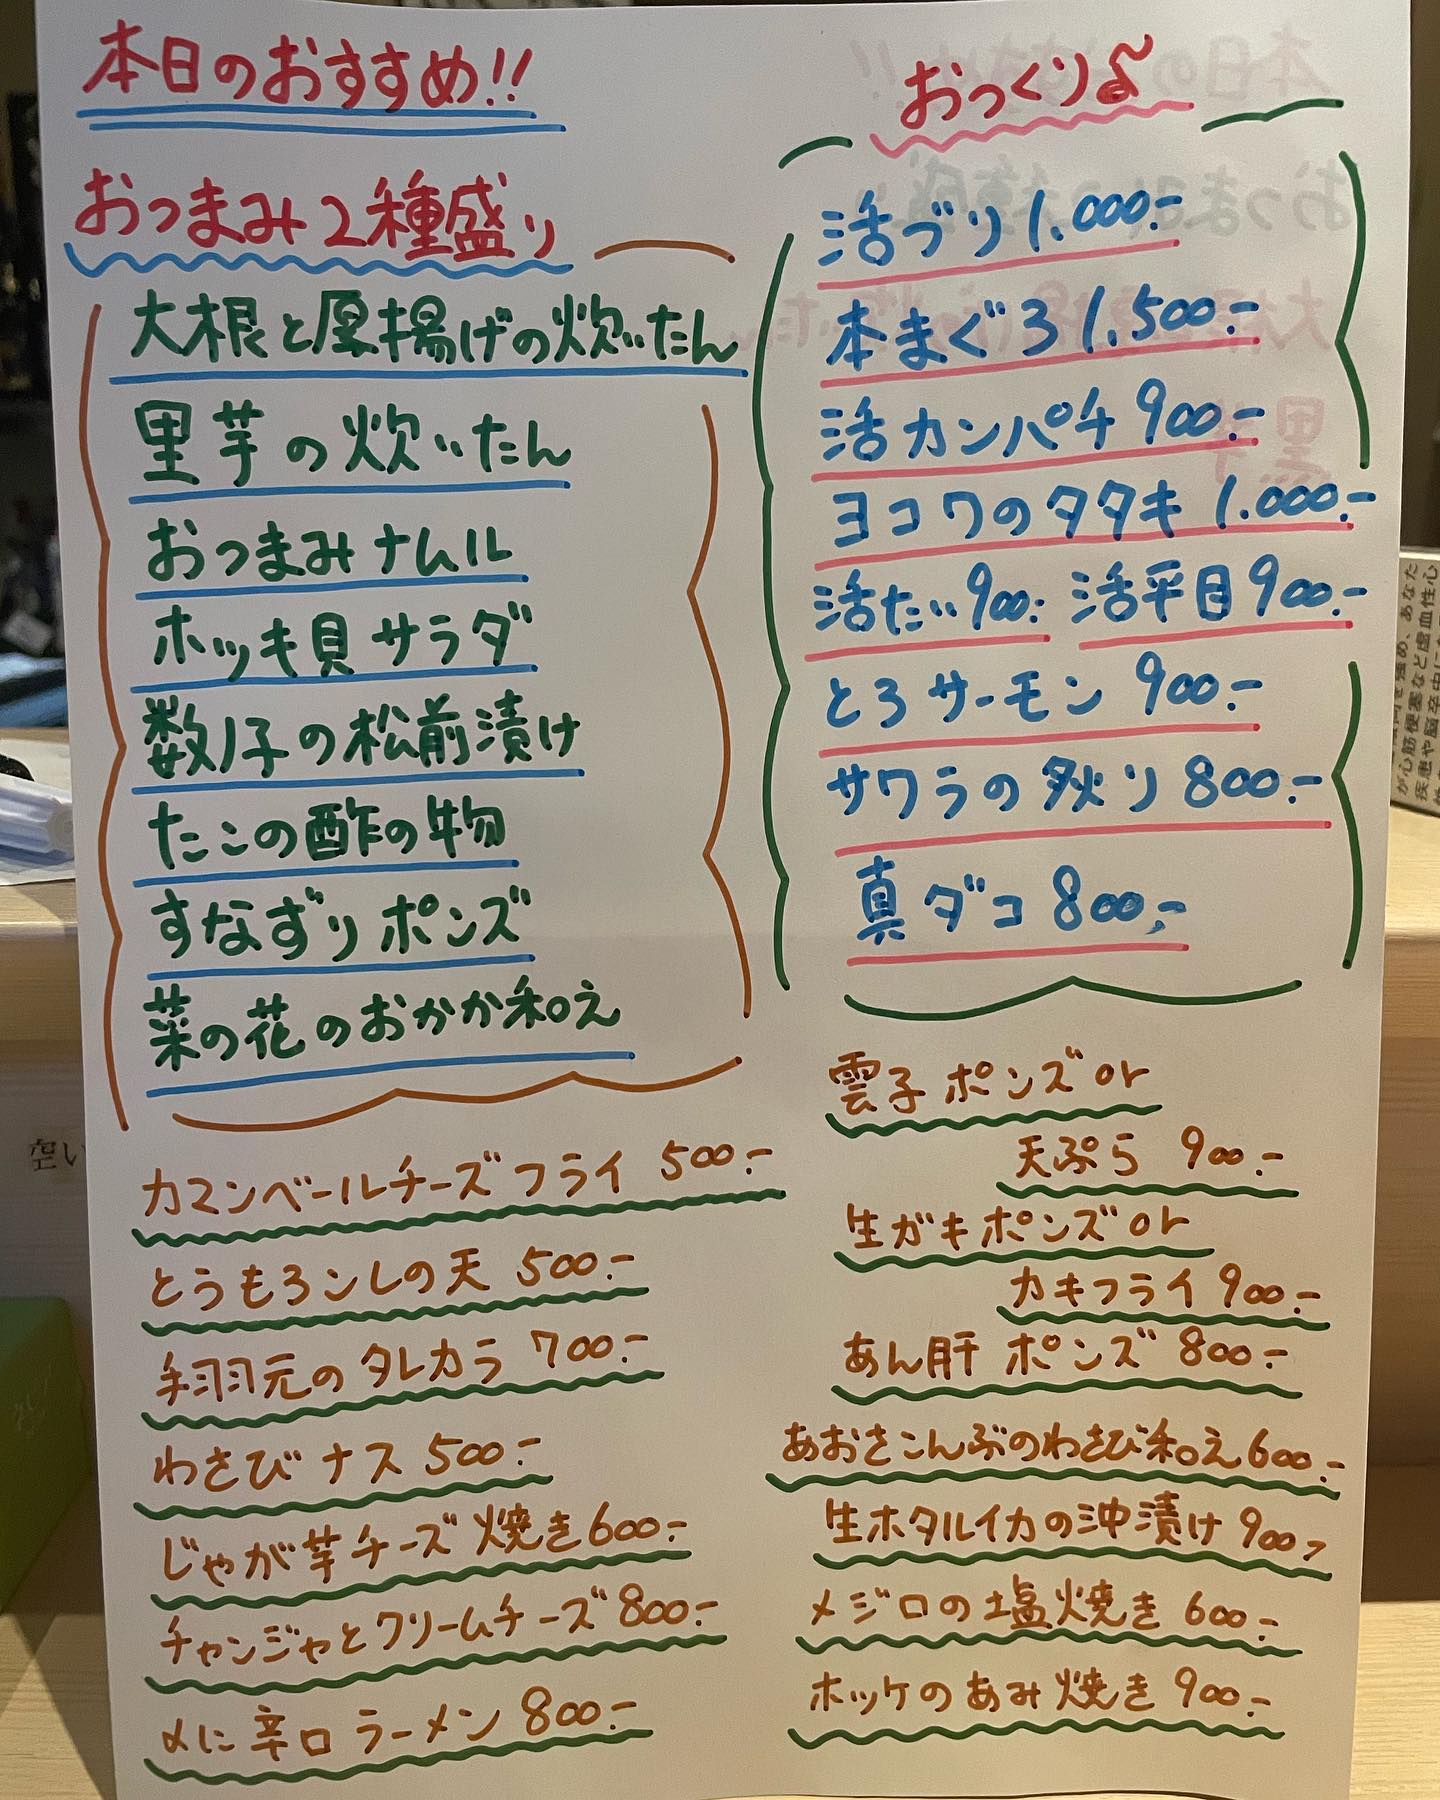 本日のおすすめ!!
おつまみ2種盛り
大根と厚揚げの炊いたん
里芋の炊いたん
おつまみナムル
ホッキ貝サラダ
数ノ子の松前漬け
たこの酢の物
すなずりポンズ
菜の花のおかか和え
カマンベールチーズフライ 500.-
とうもろこしの天 500.-
手羽元のタレカラ 700.-
わさびナス 500.-
じゃが芋チーズ焼き 600.-
チャンジャとクリームチーズ 800.-
〆に辛口ラーメン 800.-
おつくり
活ブリ 1.000.-
本まぐろ 1.500.-
活カンパチ 900.-
ヨコワのタタキ 1.000.-
活たい 900.- 活平目 900.-
とろサーモン 900.-
サワラの炙り 800.-
真ダコ 800.-
雲子ポンズor
天ぷら 900.-
生ガキポンズor
カキフライ 900.-
あん肝ポンズ 800.-
あおさこんぶのわさび和え 600.-
生ホタルイカの沖漬け 900.-
メジロの塩焼き 600.-
ホッケのあみ焼き 900.-
空い